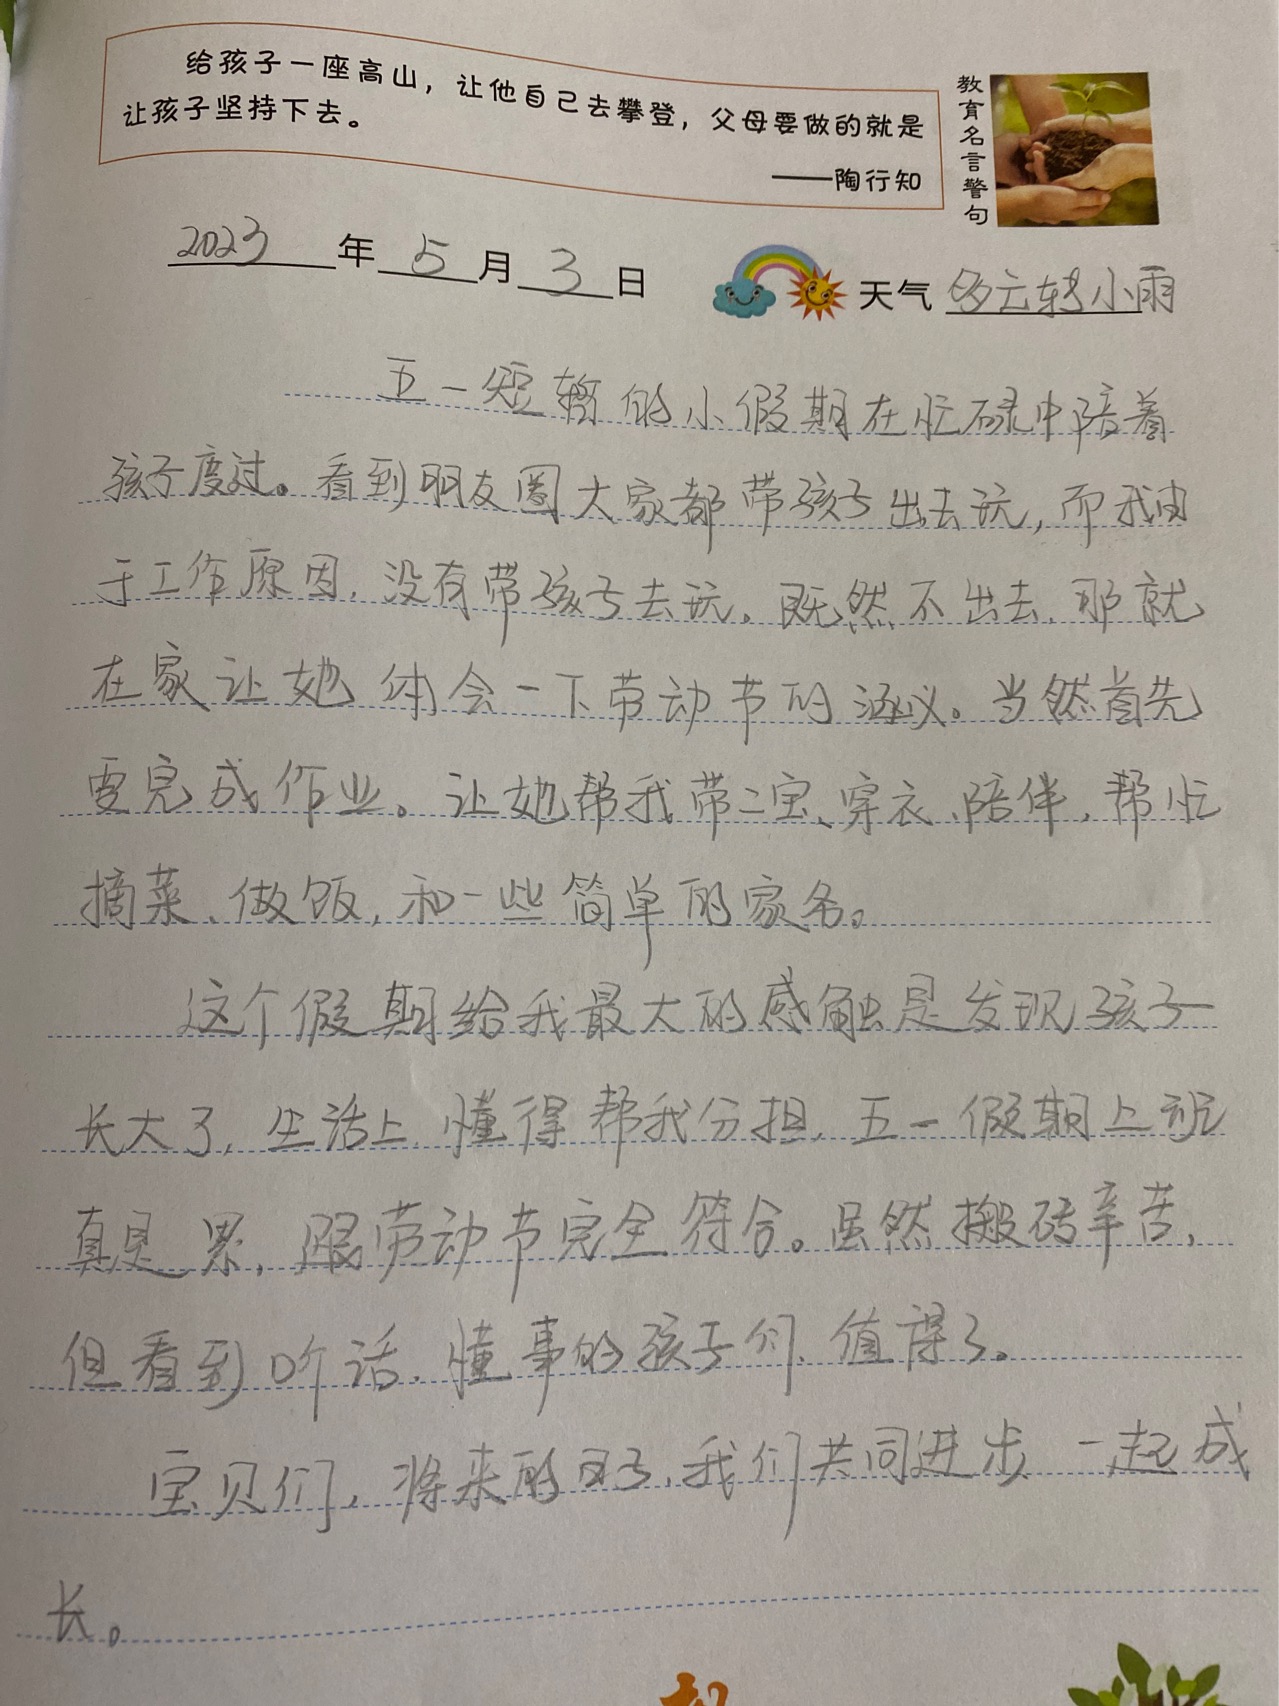 给孩子一座高山，让他自己去攀登，父母要做的就是
让孩子坚持下去。
——陶行知
教育名言警句
2023年5月3日
天气 多云转小雨
五一短暂的小假期在忙碌中陪着
孩子度过。看到朋友圈大家都带孩子出去玩，而我由
于工作原因，没有带孩子去玩。既然不出去，那就
在家让她体会一下劳动节的涵议。当然首先
要完成作业。让她帮我带二宝、穿衣、陪伴，帮忙
摘菜、做饭，和一些简单的家务。
这个假期给我最大的感触是发现孩子
长大了，生活上，懂得帮我分担，五一假期上班
真是累，跟劳动节完全符合。虽然搬砖辛苦，
但看到听话、懂事的孩子们、值得了。
宝贝们，将来的日子，我们共同进步 一起成
长。